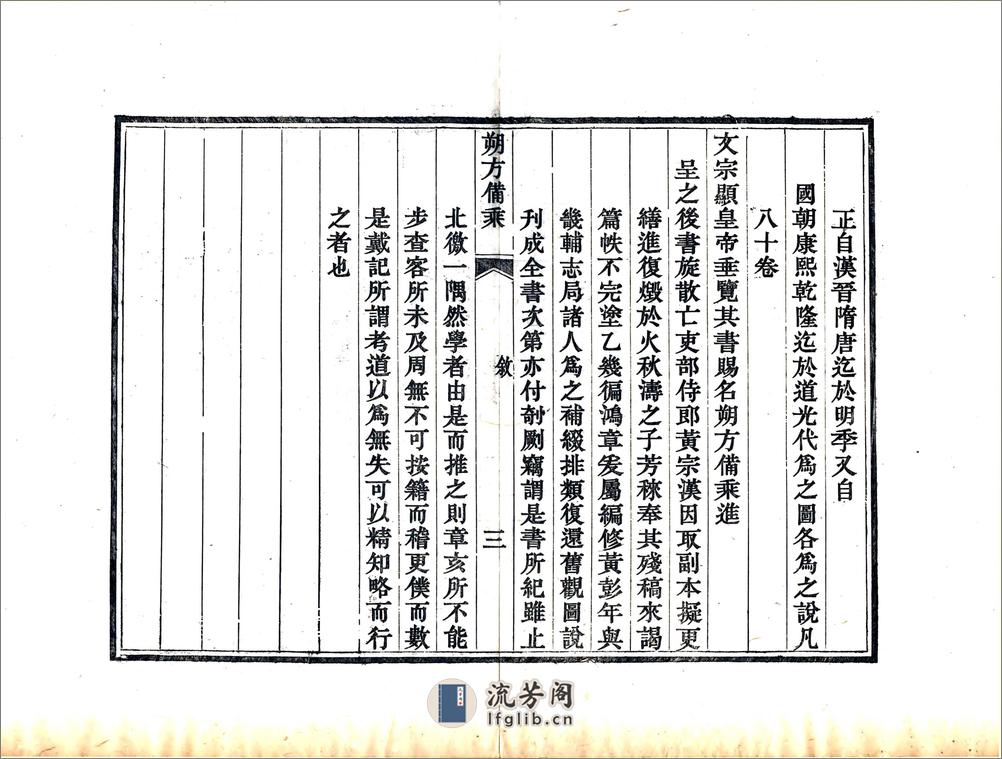 正自漢晉隋唐迄於明季又自
國朝康熙乾隆迄於道光代爲之圖各爲之說凡
八十卷
文宗顯皇帝垂覽其書賜名朔方備乘進
呈之後書旋散亡吏部侍郎黃宗漢因取副本擬更
繕進復燬於火秋濤之子芳秝奉其殘稿來謁
篇帙不完塗乙幾徧鴻章爰屬編修黃彭年與
畿輔志局諸人爲之補綴排類復還舊觀圖說
刊成全書次第亦付剞劂竊謂是書所紀雖止
朔方備乘
敘
三
北徼一隅然學者由是而推之則章亥所不能
步查客所未及周無不可按籍而稽更僕而數
是戴記所謂考道以爲無失可以精知略而行
之者也
流芳阁
lfglib.cn